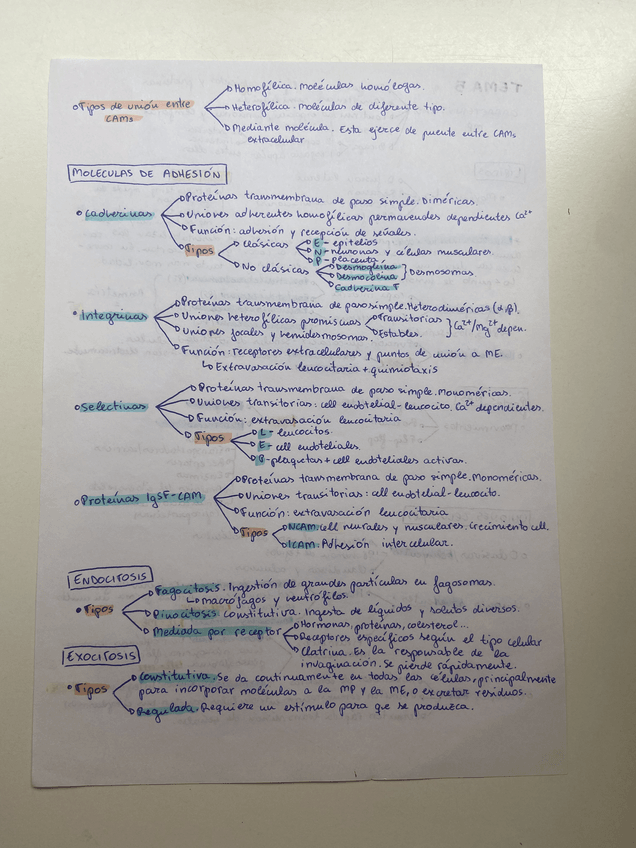 Homofílica. Moléculas homólogas.
Tipos de unión entre CAMs
Heterofílica. Moléculas de diferente tipo.
Mediante molécula. Esta ejerce de puente entre CAMs
extracelular
MOLECULAS DE ADHESIÓN
Cadherinas
Proteínas transmembrana de paso simple. Diméricas.
Uniones adherentes homofílicas permanentes dependientes Ca2+
Función: adhesión y recepción de señales.
Tipos
Clásicas
E - epitelios
N - neuronas y células musculares.
P - placenta
No clásicas
Desmogleina
Desmocolina
} Desmosomas.
Cadherina T
Integrinas
Proteínas transmembrana de paso simple. Heterodiméricas (α, β).
Uniones heterofílicas promiscuas
Transitorias
Estables.
} Ca2+/Mg2+ depen.
Uniones focales y hemidesmosomas.
Función: receptores extracelulares y puntos de unión a ME.
↳ Extravasación leucocitaria + quimiotaxis
Selectinas
Proteínas transmembrana de paso simple. Monoméricas.
Uniones transitorias: cell endotelial-leucocito. Ca2+ dependientes.
Función: extravasación leucocitaria
Tipos
L - leucocitos.
E - cell endoteliales.
P - plaquetas + cell endoteliales activas.
Proteínas IgSF-CAM
Proteínas transmembrana de paso simple. Monoméricas.
Uniones transitorias: cell endotelial-leucocito.
Función: extravasación leucocitaria
Tipos
NCAM. Cell neurales y musculares. Crecimiento cell.
ICAM. Adhesión intercelular.
ENDOCITOSIS
Tipos
Fagocitosis. Ingestión de grandes partículas en fagosomas.
↳ macrófagos y neutrófilos.
Pinocitosis constitutiva. Ingesta de líquidos y solutos diversos.
Mediada por receptor
Hormonas, proteínas, colesterol...
Receptores específicos según el tipo celular
Clatrina. Es la responsable de la
invaginación. Se pierde rápidamente.
EXOCITOSIS
Tipos
Constitutiva. Se da continuamente en todas las células, principalmente
para incorporar moléculas a la MP y la ME, o excretar residuos.
Regulada. Requiere un estímulo para que se produzca.